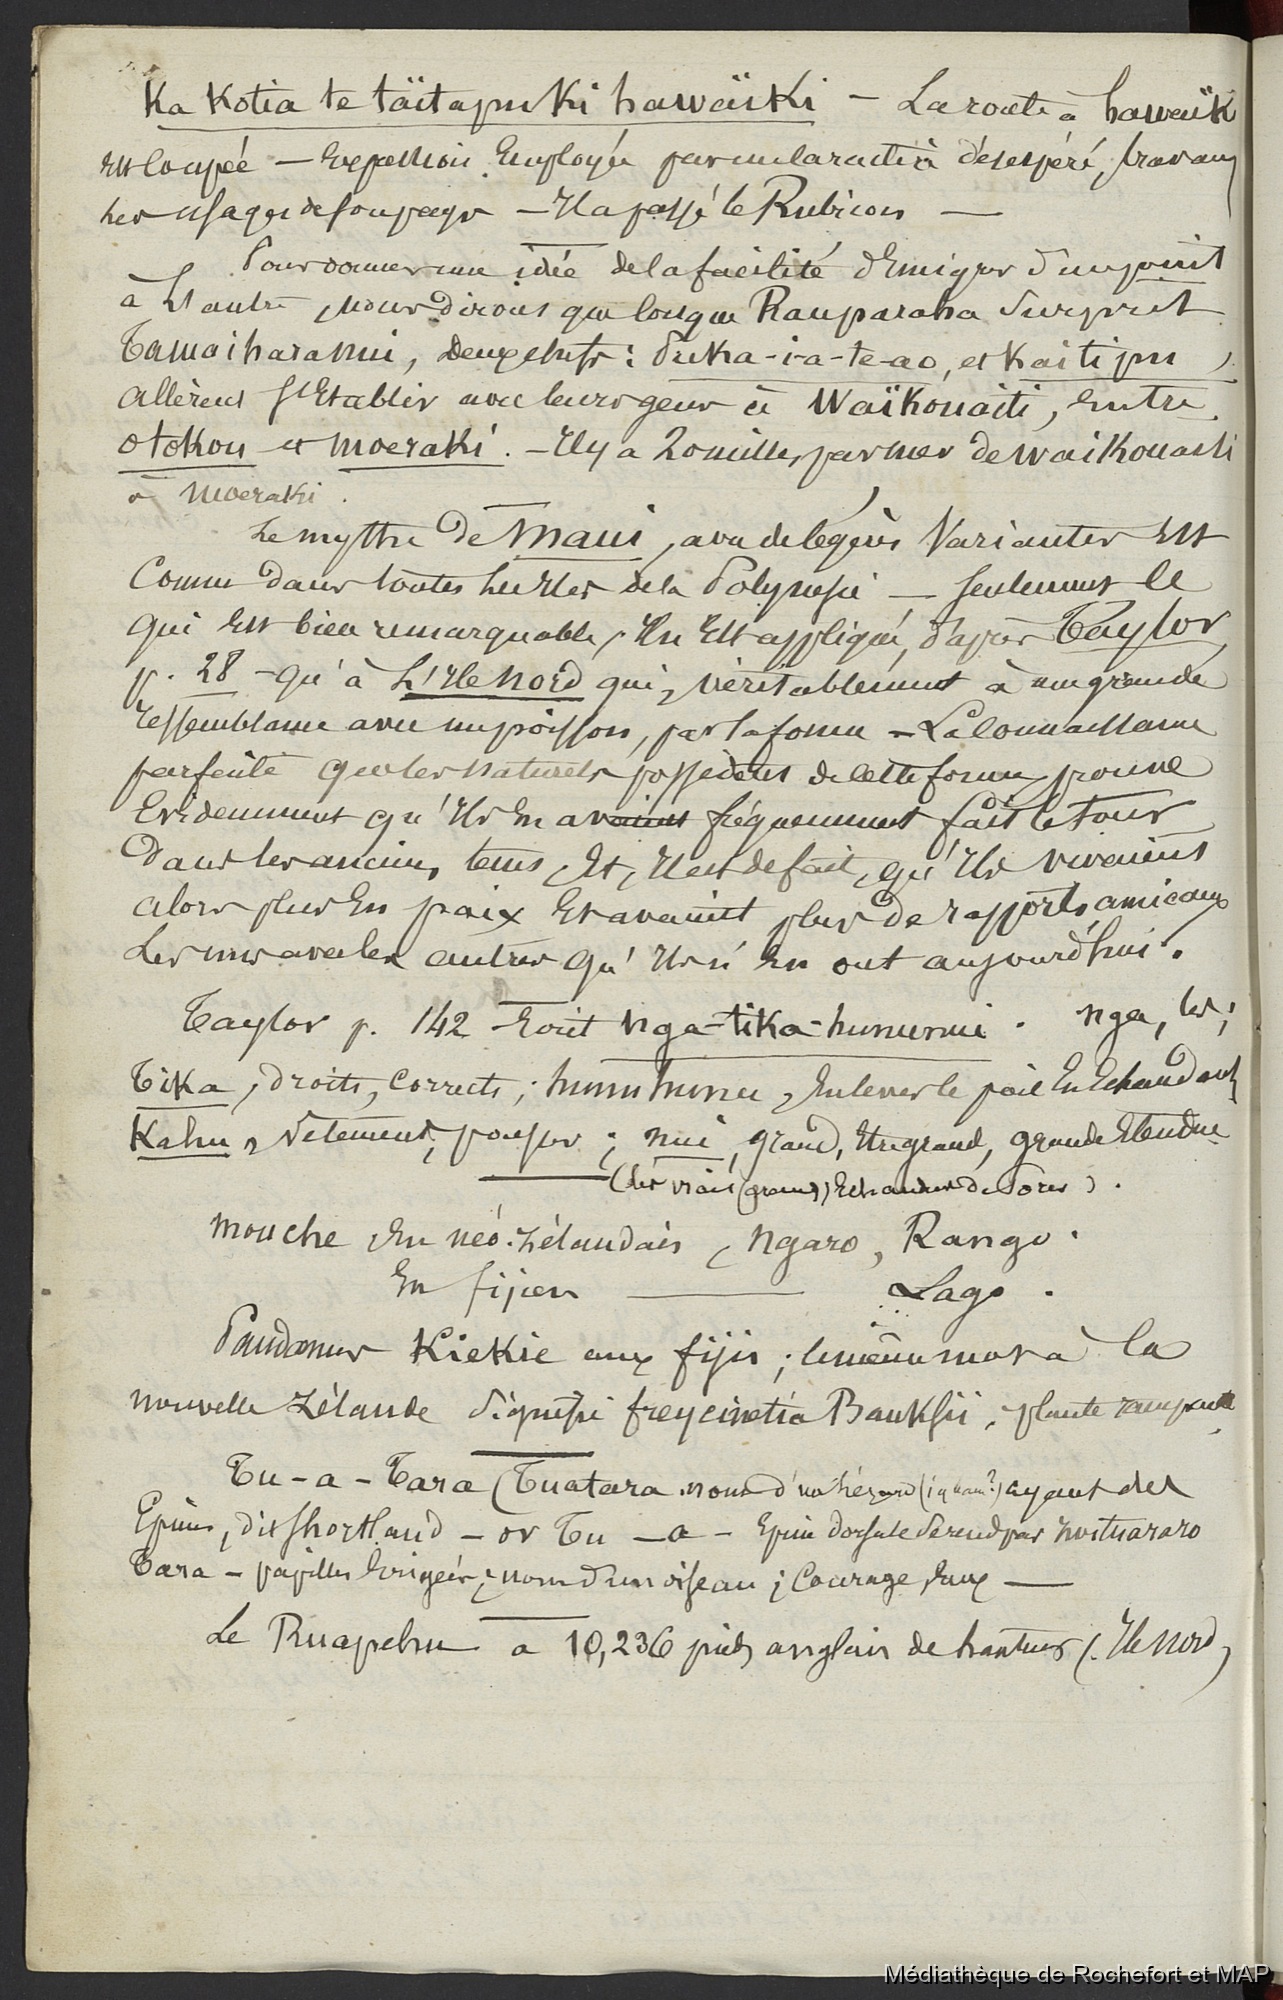 Ka Kotia te täitapu Ki hawäiKi — La route à hawaïk
est coupée — Expression Employée par un caractère désespéré, bravant
les usages de son pays — Il a passé le Rubicon —
Pour donner une idée de la facilité d'Emigrer d'un point
à L'autre, nous dirons que lorsque Rauparaha Surprit
Tamaiharanui, Deux chefs : Puka-i-a-te-ao, et Kaitipu,
allèrent s'Etablir avec leurs gens à Waïkouaiti, Entre
otokou et moeraki. — Il y a 20 milles, par mer de waiKouaiti
à moeraki.
Le mythe de Maui, avec de légères Variantes Est
Connu dans toutes les Iles de la Polynésie — seulement ce
qui Est bien remarquable, Il n'Est appliqué, d'après Taylor
p. 28 — qu'à L'Ile Nord qui, véritablement à une grande
ressemblance avec un poisson, par la forme — La Connaissance
parfaite que les naturels possèdent de cette forme, prouve
Evidemment qu'Ils En avaient fréquemment fait le tour
Dans les anciens tems, Et, Il est de fait, qu'Ils vivaient
alors plus En paix Et avaient plus de rapports amicaux
Les uns avec les autres qu'Ils n'En ont aujourd'hui.
Taylor p. 142 Ecrit Nga-tika-hununui. nga, les ;
Tika, droits, Corrects ; hunuhunu, Enlever le poil En Echaudant
Kahu, Vêtement, pousser ; nui, grand, Etre grand, grande Etendue
(les vrais (grands) Echaudeurs de Porcs).
mouche, En néo-Zélandais, Ngaro, Rango.
En fijien — Lago.
Pandanus KieKie aux fijis ; le même mot à la
nouvelle Zélande signifie freycinetia Banksii, plante rampante
Tu-a-Tara (Tuatara nom d'un lézard (iguane ?) ayant des
Epines, dit Shortland — or Tu-a- Epine dorsale se rend par Iwituararo
Tara — papilles Erigées ; nom d'un oiseau ; Courage, Eaux —
Le Ruapehu a 10,236 pieds anglais de hauteur (Ile Nord)
Médiathèque de Rochefort et MAP